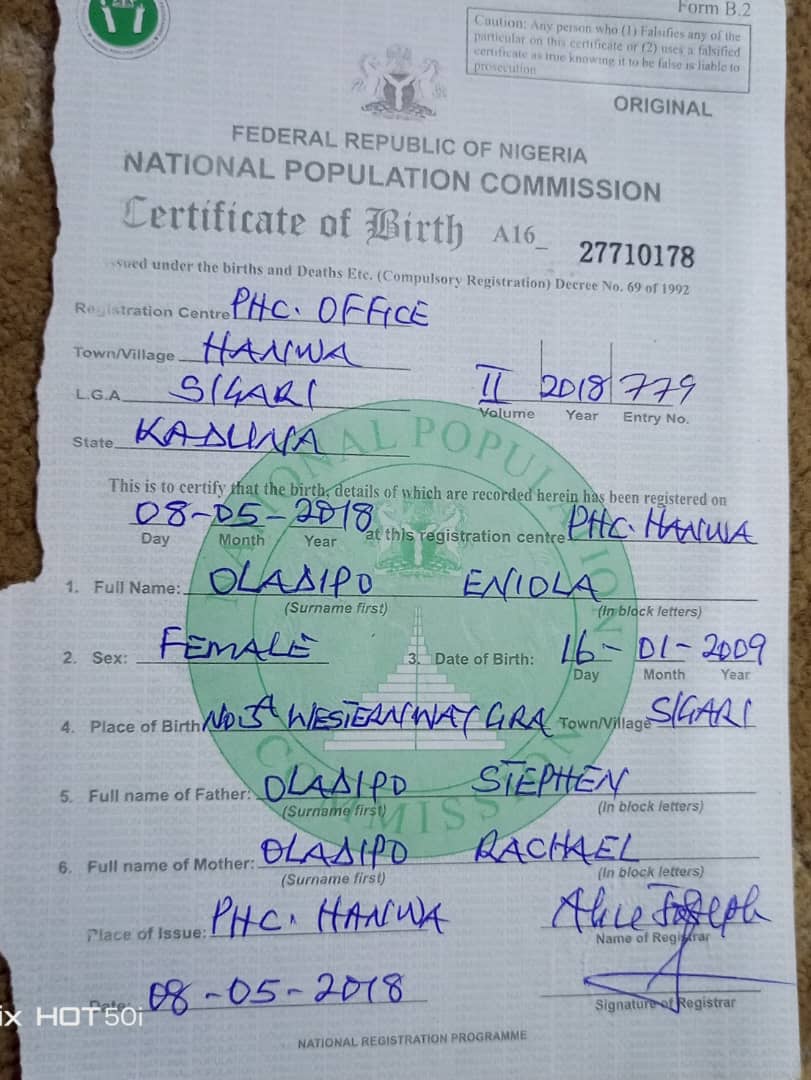 Form B.2
Caution: Any person who (1) Falsifies any of the
particular on this certificate or (2) uses a falsified
certificate as true knowing it to be false is liable to
prosecution
ORIGINAL
FEDERAL REPUBLIC OF NIGERIA
NATIONAL POPULATION COMMISSION
Certificate of Birth A16_ 27710178
ssued under the births and Deaths Etc. (Compulsory Registration) Decree No. 69 of 1992
Registration Centre PHC. OFFICE
Town/Village HANWA
L.G.A SIGARI
II 2018 779
Volume Year Entry No.
State KADUNA
This is to certify that the birth, details of which are recorded herein has been registered on
08-05-2018 at this registration centre PHC. HANWA
Day Month Year
1. Full Name: OLADIPO ENIOLA
(Surname first) (In block letters)
2. Sex: FEMALE 3. Date of Birth: 16-01-2009
Day Month Year
4. Place of Birth WESTERN WAY GRA Town/Village SIGARI
5. Full name of Father: OLADIPO STEPHEN
(Surname first) (In block letters)
6. Full name of Mother: OLADIPO RACHAEL
(Surname first) (In block letters)
Place of Issue: PHC. HANWA Alice Joseph
Name of Registrar
Date: 08-05-2018
Signature of Registrar
NATIONAL REGISTRATION PROGRAMME
NATIONAL POPULATION COMMISSION
ix HOT 50i